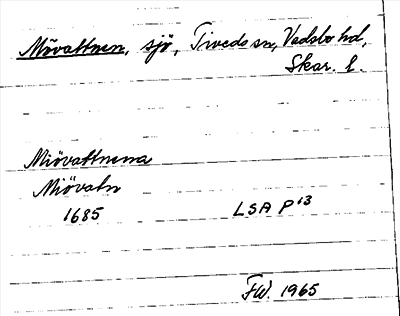 Mövattnen, sjö, Tiveds sn, Vadsbo hd,
Skar. l.
Miövattnena
Miövatn
1685 LSA P 13
FW. 1965